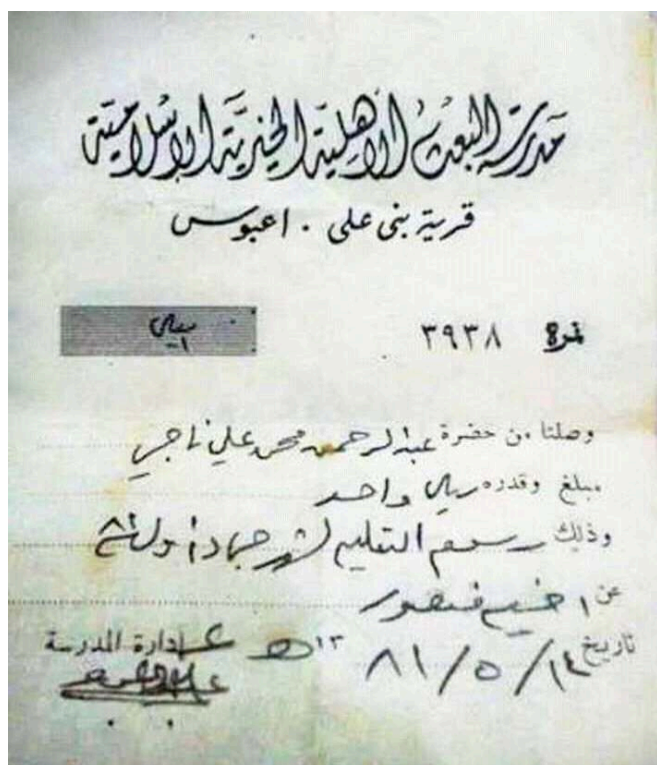 مدرسة البعث الأهلية الخيرية الإسلامية
قرية بنى على . اعبوس
نمرة ٣٩٣٨
ريال
١
وصلنا من حضرة عبدالرحمن محمد علي ناجي
مبلغ وقدره ريال واحد
وذلك رسوم التعليم لشهر جماد أول ٨١
عن
تاريخ ١٤/٥/٨١ ١٣ هـ
ادارة المدرسة